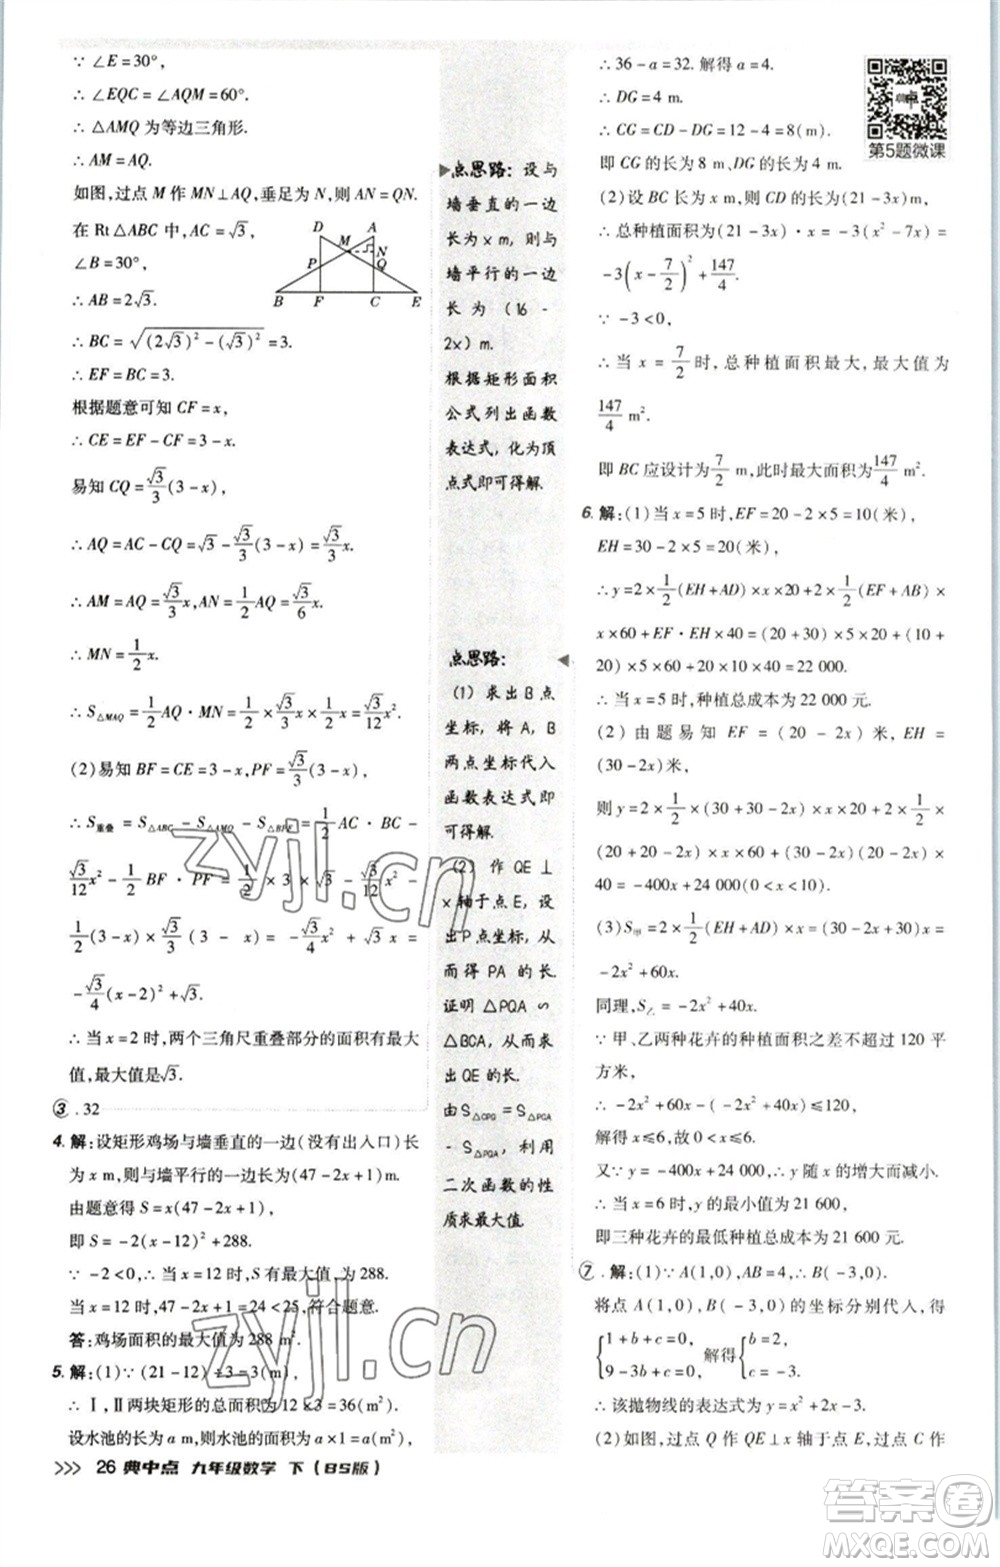 ∵ ∠E = 30°,
∴ ∠EQC = ∠AQM = 60°.
∴ △AMQ 为等边三角形.
∴ AM = AQ.
如图,过点 M 作 MN⊥AQ,垂足为 N,则 AN = QN.
在 Rt△ABC 中,AC = √3,
∠B = 30°,
D M A P N Q B F C E
∴ AB = 2√3.
∴ BC = √((2√3)² - (√3)²) = 3.
∴ EF = BC = 3.
根据题意可知 CF = x,
∴ CE = EF - CF = 3 - x.
易知 CQ = √3/3(3 - x),
∴ AQ = AC - CQ = √3 - √3/3(3 - x) = √3/3 x.
∴ AM = AQ = √3/3 x, AN = 1/2 AQ = √3/6 x.
∴ MN = 1/2 x.
∴ S△MAQ = 1/2 AQ · MN = 1/2 × √3/3 x × 1/2 x = √3/12 x².
(2)易知 BF = CE = 3 - x, PF = √3/3(3 - x),
∴ S重叠 = S△ABC - S△AMQ - S△BPF = 1/2 AC · BC -
√3/12 x² - 1/2 BF · PF = 1/2 × 3 × √3 - √3/12 x² -
1/2(3 - x) × √3/3(3 - x) = -√3/4 x² + √3x =
-√3/4(x - 2)² + √3.
∴ 当 x = 2 时,两个三角尺重叠部分的面积有最大
值,最大值是√3.
③. 32
4. 解:设矩形鸡场与墙垂直的一边(没有出入口)长
为 x m,则与墙平行的一边长为(47 - 2x + 1)m.
由题意得 S = x(47 - 2x + 1),
即 S = -2(x - 12)² + 288.
∵ -2 < 0,∴ 当 x = 12 时,S 有最大值,为 288.
当 x = 12 时,47 - 2x + 1 = 24 < 25,符合题意.
答:鸡场面积的最大值为 288 m².
5. 解:(1)∵ (21 - 12) ÷ 3 = 3(m),
∴ Ⅰ,Ⅱ两块矩形的总面积为 12 × 3 = 36(m²).
设水池的长为 a m,则水池的面积为 a × 1 = a(m²).
>>> 26 典中点 九年级数学 下(BS版)
点思路:设与
墙垂直的一边
长为 x m,则与
墙平行的一边
长为(16 -
2x)m.
根据矩形面积
公式列出函数
表达式,化为顶
点式即可得解.
点思路:
(1)求出 B 点
坐标,将 A,B
两点坐标代入
函数表达式即
可得解.
(2)作 QE⊥
x 轴于点 E,设
出 P 点坐标,从
而得 PA 的长.
证明 △PQA ∽
△BCA,从而求
出 QE 的长.
由 S△CPQ = S△PCA
- S△PQA,利用
二次函数的性
质求最大值.
∴ 36 - a = 32. 解得 a = 4.
∴ DG = 4 m.
∴ CG = CD - DG = 12 - 4 = 8(m).
即 CG 的长为 8 m、DG 的长为 4 m.
第5题微课
(2)设 BC 长为 x m,则 CD 的长为(21 - 3x)m.
∴ 总种植面积为(21 - 3x) · x = -3(x² - 7x) =
-3(x - 7/2)² + 147/4.
∵ -3 < 0,
∴ 当 x = 7/2 时,总种植面积最大,最大值为
147/4 m².
即 BC 应设计为 7/2 m,此时最大面积为 147/4 m².
6. 解:(1)当 x = 5 时,EF = 20 - 2 × 5 = 10(米),
EH = 30 - 2 × 5 = 20(米),
∴ y = 2 × 1/2 (EH + AD) × 20x + 2 × 1/2 (EF + AB) ×
x × 60 + EF · EH × 40 = (20 + 30) × 5 × 20 + (10 +
20) × 5 × 60 + 20 × 10 × 40 = 22 000.
∴ 当 x = 5 时,种植总成本为 22 000 元.
(2) 由题易知 EF = (20 - 2x) 米,EH =
(30 - 2x)米,
则 y = 2 × 1/2 × (30 + 30 - 2x) × x × 20 + 2 × 1/2 ×
(20 + 20 - 2x) × x × 60 + (30 - 2x) × (20 - 2x) ×
40 = -400x + 24 000(0 < x < 10).
(3)S甲 = 2 × 1/2(EH + AD) × x = (30 - 2x + 30)x =
-2x² + 60x.
同理,S乙 = -2x² + 40x.
∵ 甲、乙两种花卉的种植面积之差不超过 120 平
方米,
∴ -2x² + 60x - (-2x² + 40x) ≤ 120.
解得 x ≤ 6,故 0 < x ≤ 6.
又∵ y = -400x + 24 000,∴ y 随 x 的增大而减小.
∴ 当 x = 6 时,y 的最小值为 21 600,
即三种花卉的最低种植总成本为 21 600 元.
⑦. 解:(1)∵ A(1,0),AB = 4,∴ B(-3,0).
将点 A(1,0),B(-3,0)的坐标分别代入,得
{1 + b + c = 0, 9 - 3b + c = 0. 解得 {b = 2, c = -3.
∴ 该抛物线的表达式为 y = x² + 2x - 3.
(2)如图,过点 Q 作 QE⊥x 轴于点 E,过点 C 作
zyjl.cn
zyjl.cn
答案圈
MXQE.COM